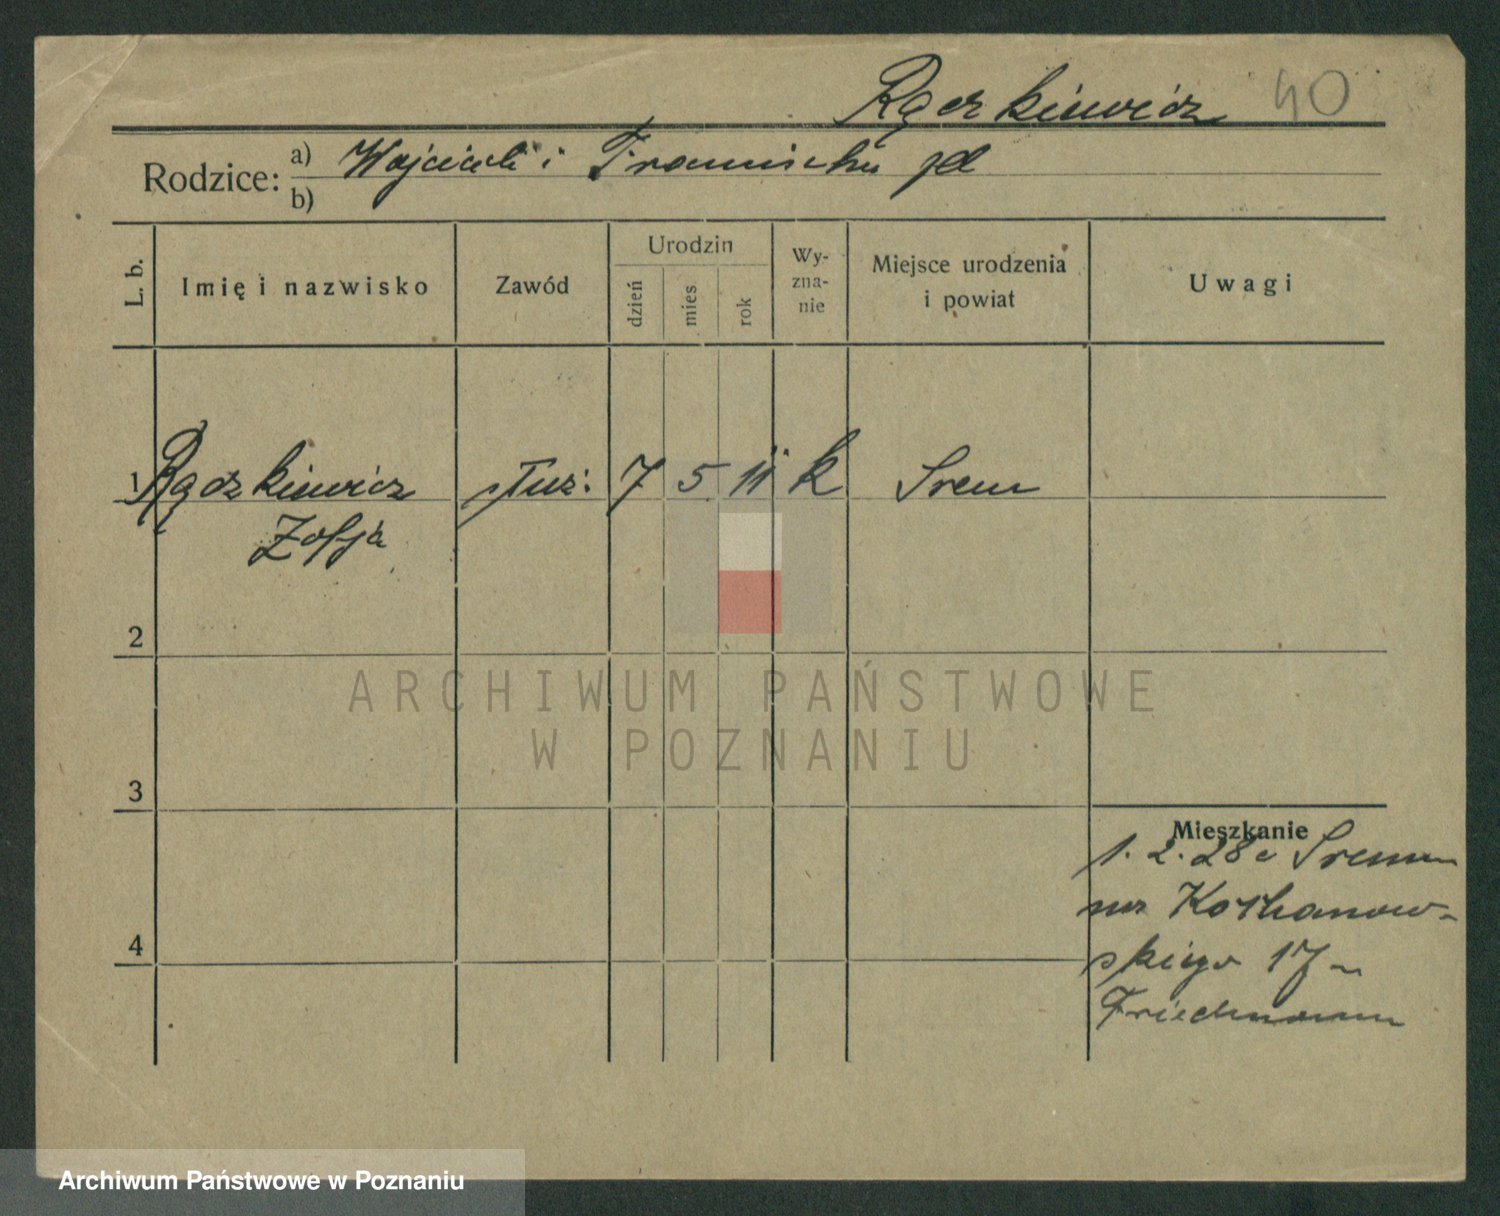 Rączkiewicz 40
Rodzice: a) Wojciech i Franciszka
b)
L. b. Imię i nazwisko Zawód Urodzin dzień mies rok Wy-zna-nie Miejsce urodzenia i powiat Uwagi
1 Rączkiewicz służ: 7 5 11 k Srem
Zofja
2
3
4
Mieszkanie
1. 2. 28 Srem
Kochanow-
skiego 17
Friedmann
ARCHIWUM PAŃSTWOWE
W POZNANIU
Archiwum Państwowe w Poznaniu